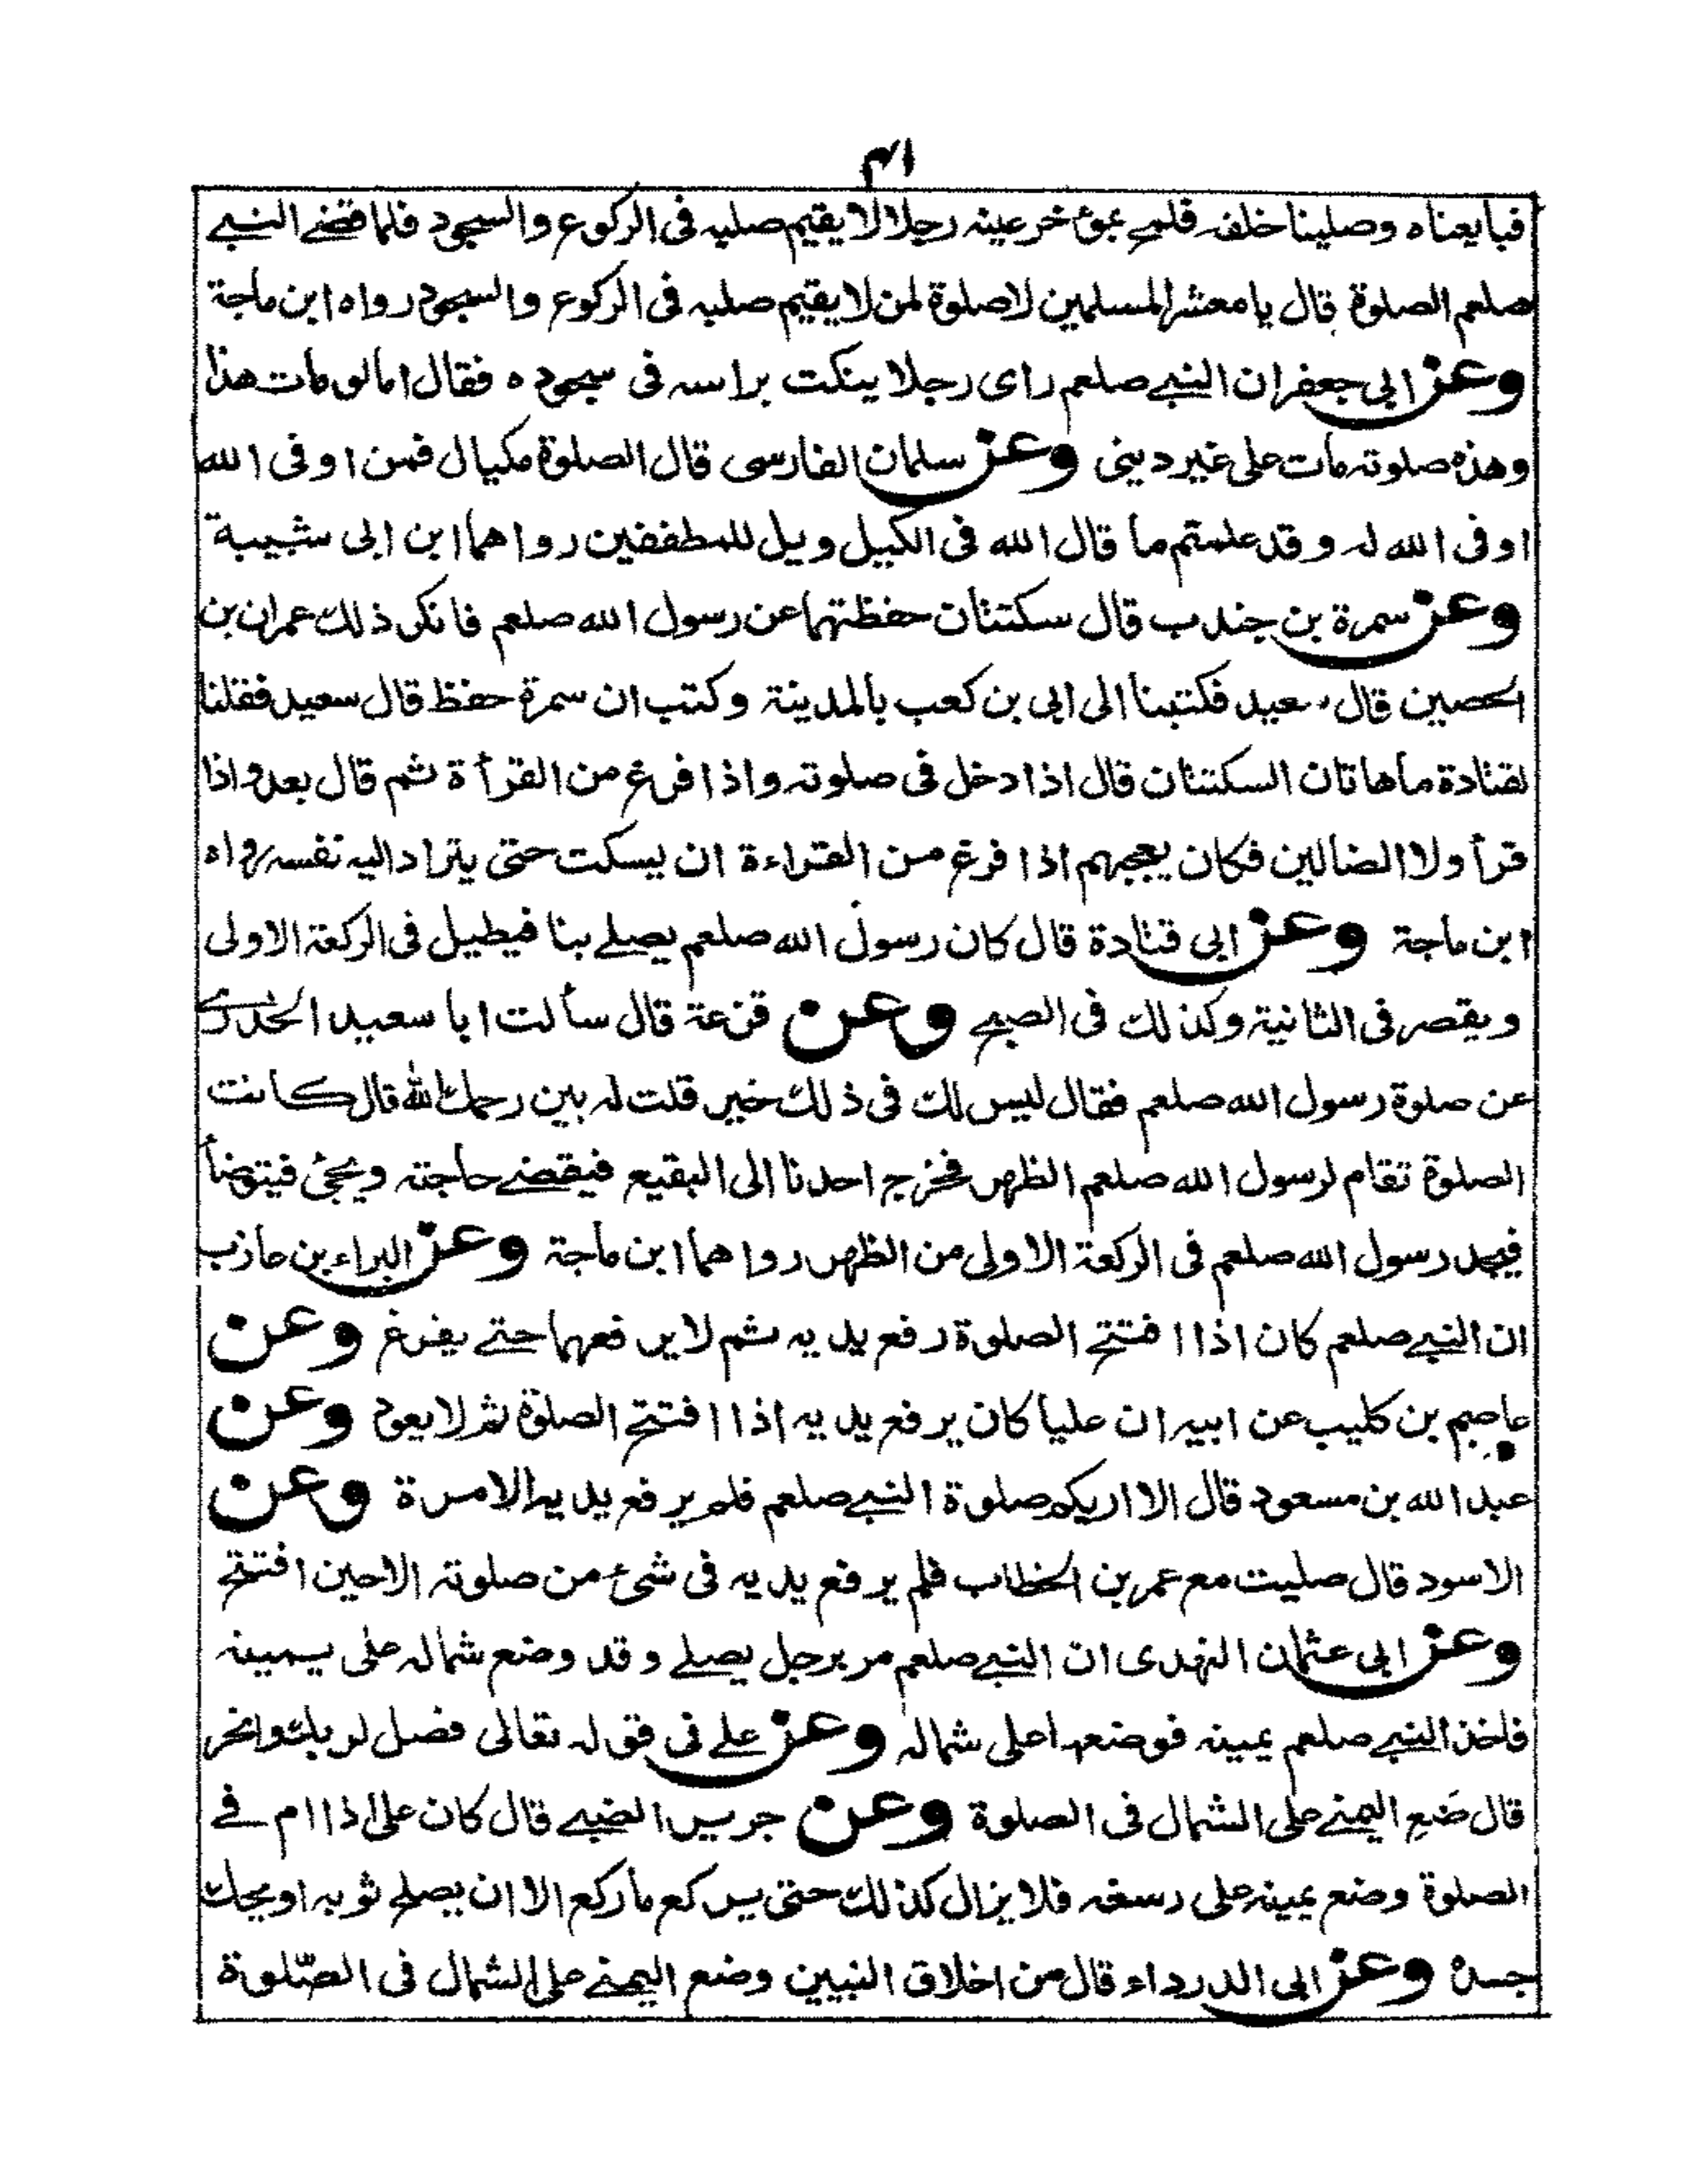 ۴۱
فبايعناه وصلينا خلفه فلمح بمؤخر عينه رجلا لا يقيم صلبه فى الركوع والسجود فلما قضے النبے
صلعم الصلوة قال يا معشر المسلمين لا صلوة لمن لا يقيم صلبه فى الركوع والسجود رواه ابن ماجة
وعن ابى جعفر ان النبے صلعم راى رجلا ينكت براسه فى سجوده فقال امالو مات هذا
وهذه صلوته مات على غير دينى وعن سلمان الفارسى قال الصلوة مكيال فمن اوفى الله
اوفى الله له وقد علمتم ما قال الله فى الكيل ويل للمطففين رواهما ابن ابى شيبة
وعن سمرة بن جندب قال سكتتان حفظتهما عن رسول الله صلعم فانكر ذلك عمران بن
الحصين قال سعيد فكتبنا الى ابى بن كعب بالمدينة وكتب ان سمرة حفظ قال سعيد فقلنا
لقتادة ما هاتان السكتتان قال اذا دخل فى صلوته واذا فرغ من القرأة ثم قال بعد واذا
قرأ ولا الضالين فكان يعجبهم اذا فرغ من القراءة ان يسكت حتى يتراد اليه نفسه رواه
ابن ماجة وعن ابى قتادة قال كان رسول الله صلعم يصلے بنا فيطيل فى الركعة الاولى
ويقصر فى الثانية وكذلك فى الصبح وعن قزعة قال سألت ابا سعيد الخدرى
عن صلوة رسول الله صلعم فقال ليس لك فى ذلك خير قلت له بين رحمك الله قال كانت
الصلوة تقام لرسول الله صلعم الظهر فخرج احدنا الى البقيع فيقضے حاجته ويجئ فيتوضأ
فيجد رسول الله صلعم فى الركعة الاولى من الظهر رواهما ابن ماجة وعن البراء بن عازب
ان النبے صلعم كان اذا افتتح الصلوة رفع يديه ثم لا يرفعهما حتے يفرغ وعن
عاصم بن كليب عن ابيه ان عليا كان يرفع يديه اذا افتتح الصلوة ثم لا يعود وعن
عبد الله بن مسعود قال الا اريكم صلوة النبے صلعم فلم يرفع يديه الا مرة وعن
الاسود قال صليت مع عمر بن الخطاب فلم يرفع يديه فى شئ من صلوته الا حين افتتح
وعن ابى عثمان النهدى ان النبے صلعم مر برجل يصلے وقد وضع شماله على يمينه
فاخذ النبے صلعم يمينه فوضعها على شماله وعن علے فى قوله تعالى فصل لربك وانحر
قال ضع اليمنے على الشمال فى الصلوة وعن جرير الضبے قال كان على اذا ام فے
الصلوة وضع يمينه على رسغه فلا يزال كذلك حتى يركع ما ركع الا ان يصلح ثوبه او يحك
جسده وعن ابى الدرداء قال من اخلاق النبيين وضع اليمنے على الشمال فى الصّلوة